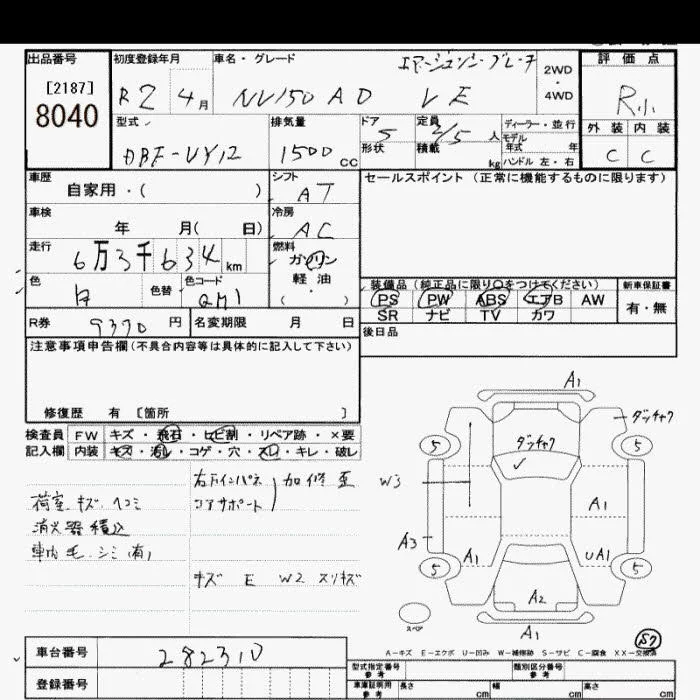 出品番号
[2187]
8040
初度登録年月
R2 4月
車名・グレード
エマージェンシーブレーキ
NV150 AD VE
2WD
・
4WD
評価点
R小
外装 内装
C C
型式
DBF-VY12
排気量
1500 cc
ドア
5
形状
定員
2/5 人
積載
kg
ディーラー・並行
モデル
年式 年
ハンドル 左・右
車歴
自家用・( )
シフト
AT
セールスポイント (正常に機能するものに限ります)
車検
年 月( 日)
冷房
AC
走行
6万3千634km
燃料
ガソリン
軽油
( ・ )
色
白
色替
色コード
QM1
装備品 (純正品に限り○をつけてください)
PS PW ABS エアB AW
SR ナビ TV カワ
新車保証書
有・無
R券 9370 円
名変期限 月 日
後日品
注意事項申告欄(不具合内容等は具体的に記入して下さい)
修復歴 有 [箇所 ]
検査員
記入欄
FW キズ・飛石・ヒビ割・リペア跡・×要
内装 キズ・汚れ・コゲ・穴・スレ・キレ・破レ
荷室キズ、ヘコミ
消火器積込
車内毛、シミ(有)
右フロントインパネ
コアサポート
加修歪
キズ E W2 スリキズ
A1
ダッチャク
ダッチャク
5
5
W3
A1
A3
A1
UA1
5
5
A2
スペア
A1
57
A-キズ E-エクボ U-凹み W-補修跡 S-サビ C-腐食 XX-交換済
車台番号
282310
登録番号
型式指定番号
参考
類別区分番号
参考
車庫証明用
参考
長さ cm
幅 cm
高さ cm